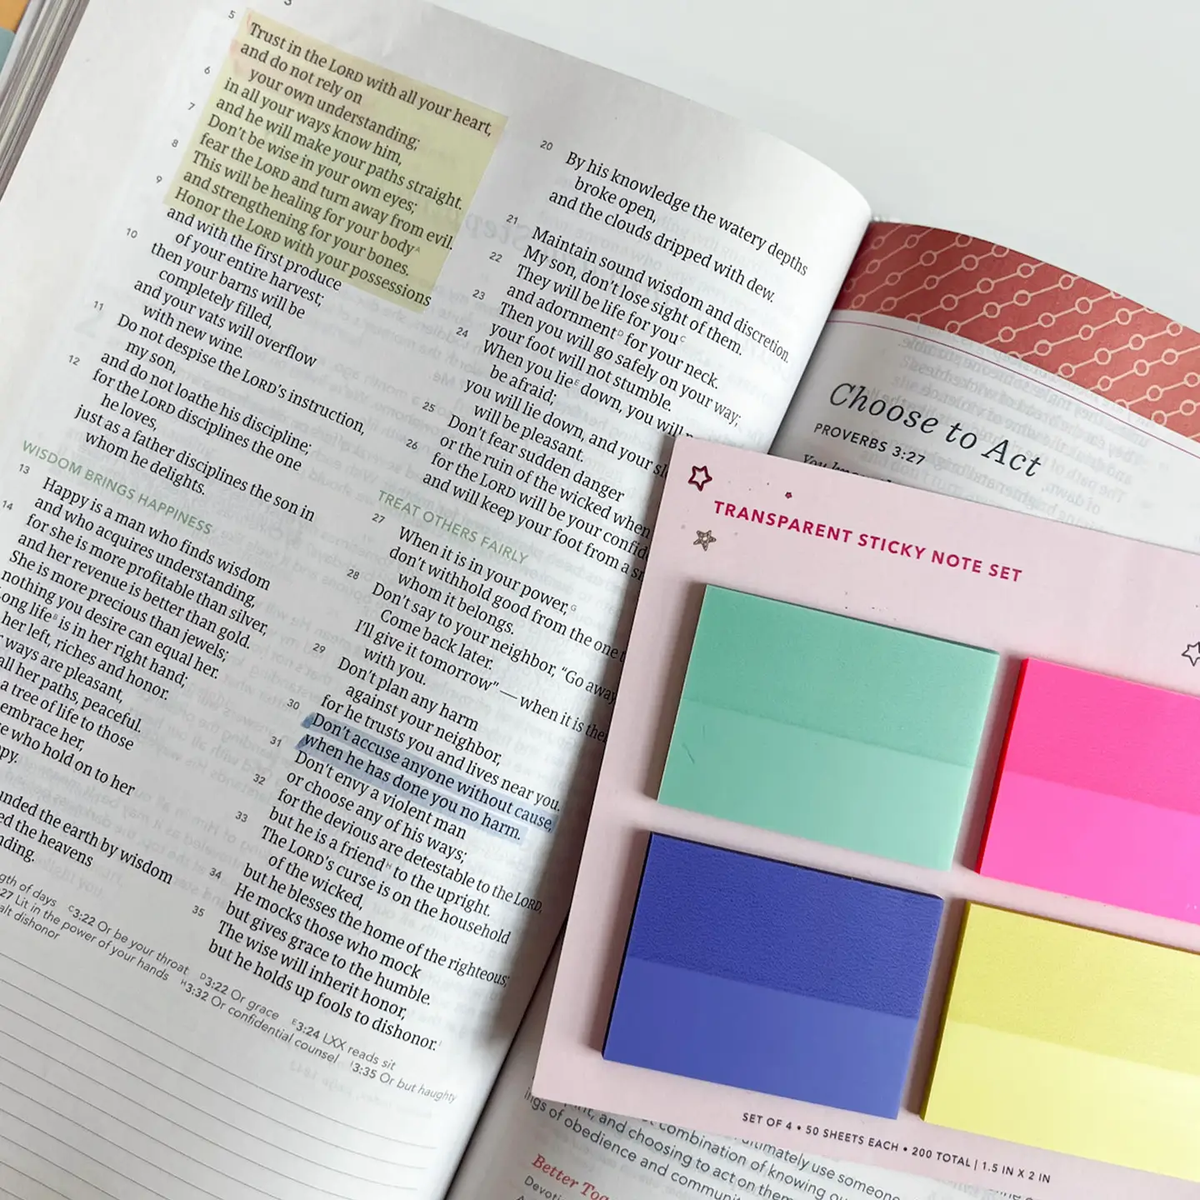 5 Trust in the LORD with all your heart,
and do not rely on
your own understanding;
6 in all your ways know him,
and he will make your paths straight.
7 Don't be wise in your own eyes;
fear the LORD and turn away from evil.
8 This will be healing for your body^A
and strengthening for your bones.
9 Honor the LORD with your possessions
and with the first produce
of your entire harvest;
10 then your barns will be
completely filled,
and your vats will overflow
with new wine.
11 Do not despise the LORD's instruction,
my son,
and do not loathe his discipline;
12 for the LORD disciplines the one
he loves,
just as a father disciplines the son in
whom he delights.
WISDOM BRINGS HAPPINESS
13 Happy is a man who finds wisdom
and who acquires understanding,
14 for she is more profitable than silver,
and her revenue is better than gold.
She is more precious than jewels;
nothing you desire can equal her.
Long life^B is in her right hand;
her left, riches and honor.
ways are pleasant,
all her paths, peaceful.
a tree of life to those
embrace her,
who hold on to her
the earth by wisdom
the heavens
20 By his knowledge the watery depths
broke open,
and the clouds dripped with dew.
21 Maintain sound wisdom and discretion.
My son, don't lose sight of them.
22 They will be life for you^C
and adornment^D for your neck.
23 Then you will go safely on your way;
your foot will not stumble.
24 When you lie^E down, you will
be afraid;
you will lie down, and your
will be pleasant.
25 Don't fear sudden danger
or the ruin of the wicked when
26 for the LORD will be your
and will keep your foot from a
TREAT OTHERS FAIRLY
27 When it is in your power,^G
don't withhold good from the one
whom it belongs.
28 Don't say to your neighbor, "Go away
Come back later.
I'll give it tomorrow" — when it is
with you.
29 Don't plan any harm
against your neighbor,
for he trusts you and lives near you.
30 Don't accuse anyone without cause,
when he has done you no harm.
31 Don't envy a violent man
or choose any of his ways;
32 for the devious are detestable to the LORD,
but he is a friend^H to the upright.
33 The LORD's curse is on the household
of the wicked,
but he blesses the home of the righteous;
34 He mocks those who mock
but gives grace to the humble.
35 The wise will inherit honor,
but he holds up fools to dishonor.^I
of days ^C3:22 Or be your throat ^D3:22 Or grace ^E3:24 LXX reads sit
27 Lit in the power of your hands ^H3:32 Or confidential counsel ^I3:35 Or but haughty
dishonor
Choose to Act
PROVERBS 3:27
TRANSPARENT STICKY NOTE SET
SET OF 4 • 50 SHEETS EACH • 200 TOTAL | 1.5 IN X 2 IN
combination of knowing
ultimately use someone
and choosing to act on
of obedience and
Better